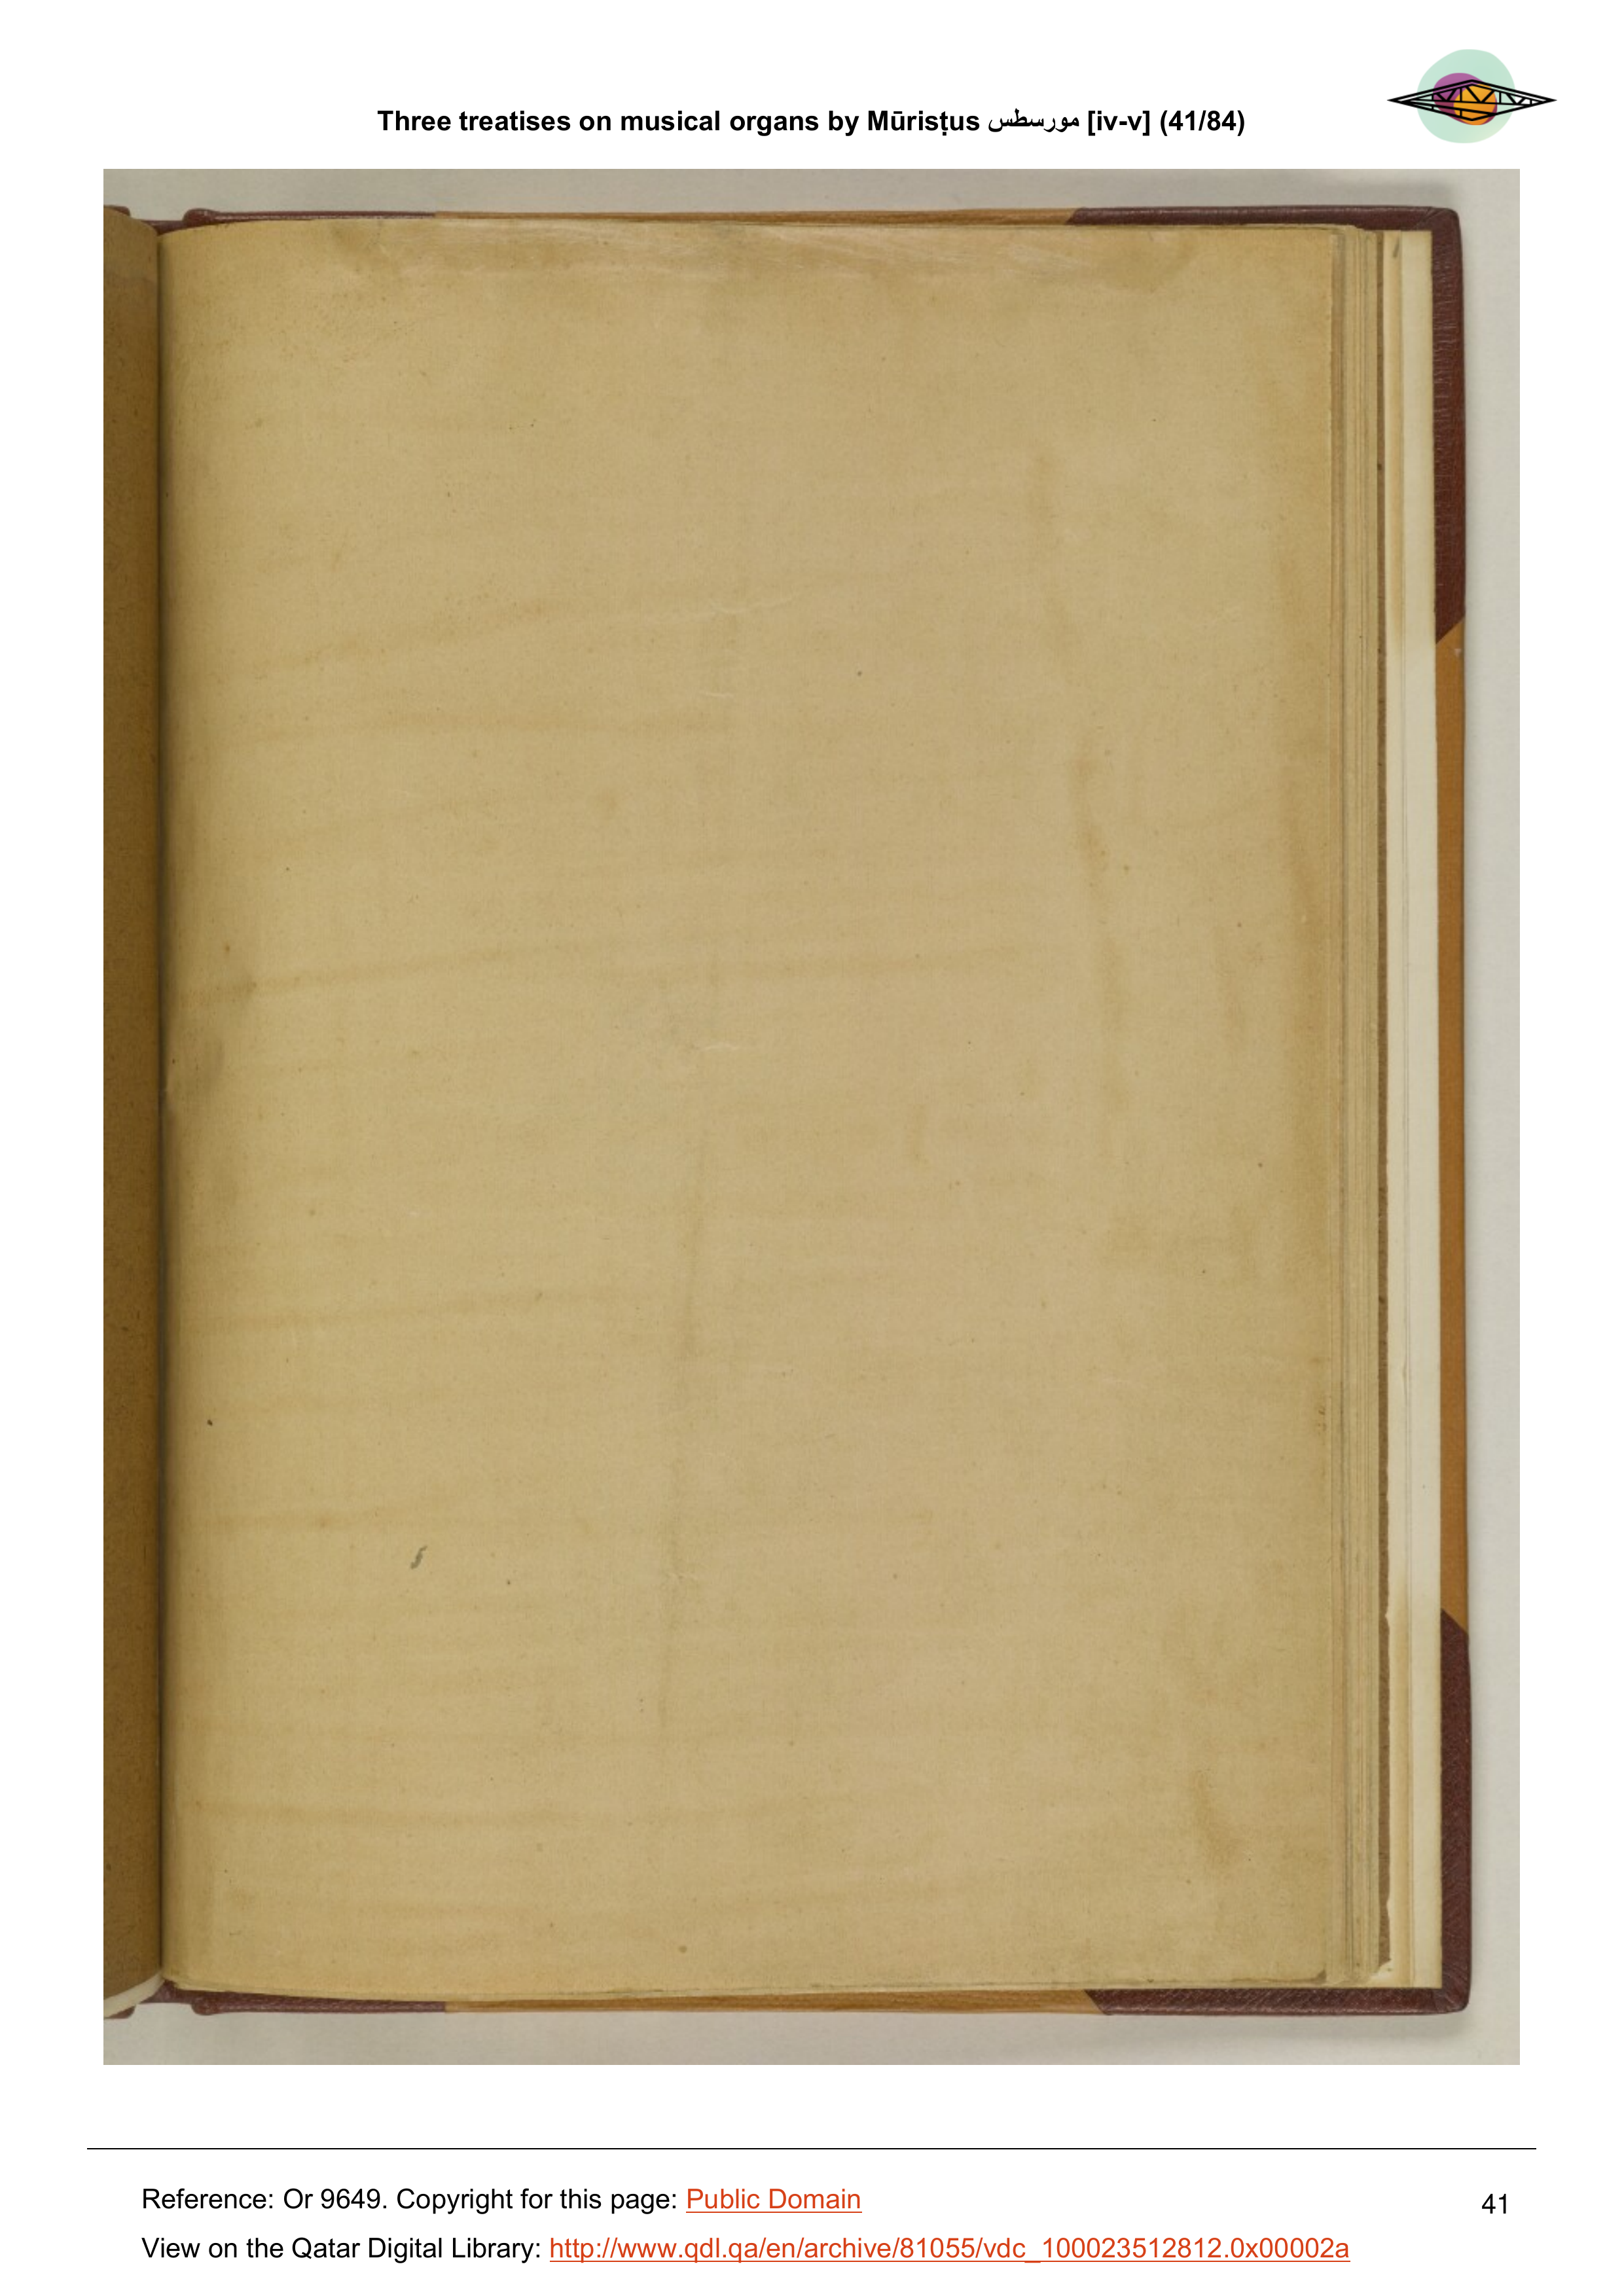 Three treatises on musical organs by Mūrisṭus مورسطس [iv-v] (41/84)
Reference: Or 9649. Copyright for this page: Public Domain
41
View on the Qatar Digital Library: http://www.qdl.qa/en/archive/81055/vdc_100023512812.0x00002a